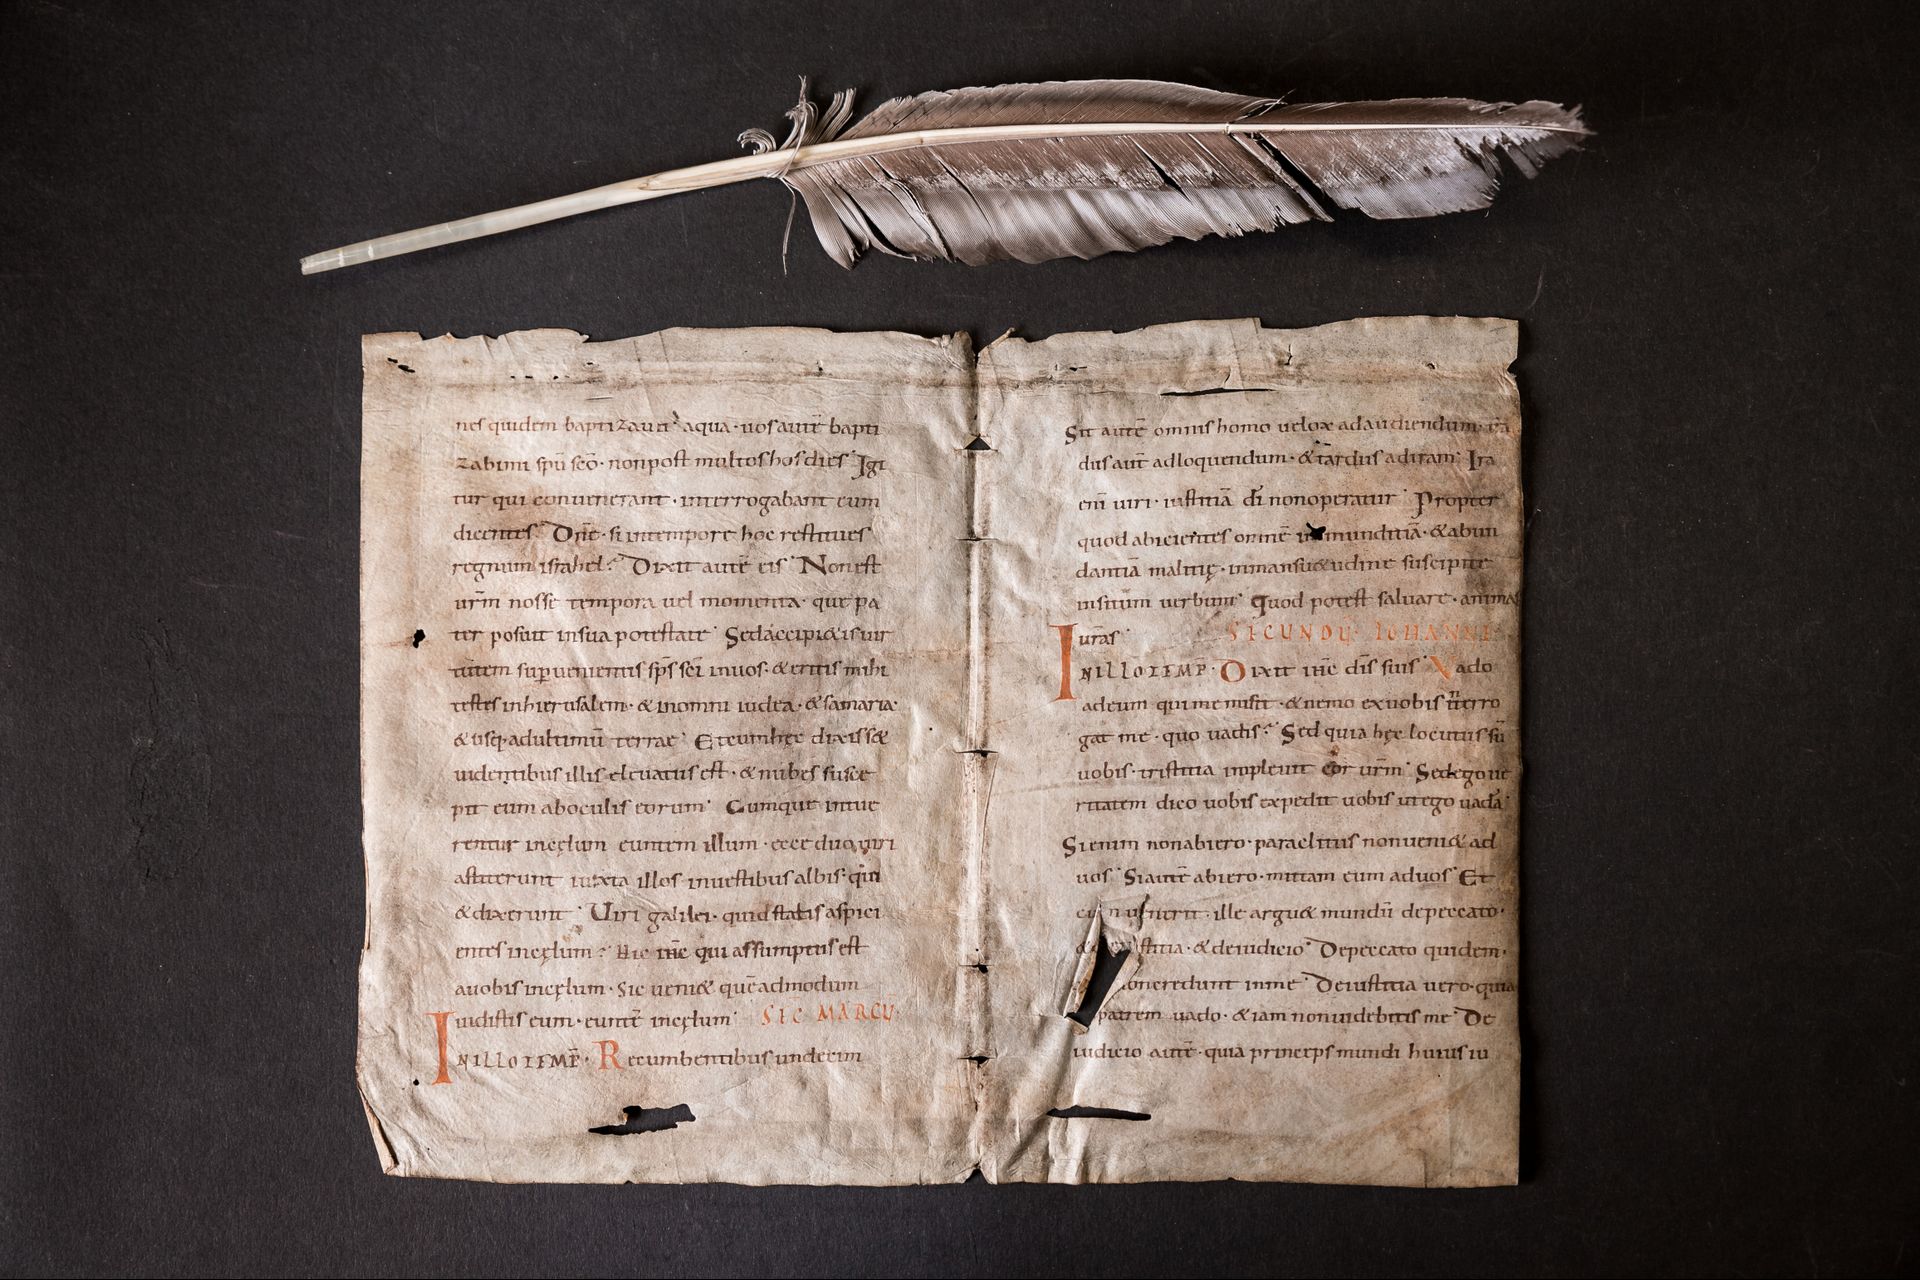 nes quidem baptizauit aqua · uos autē bapti
zabimi spū scō · non post multos hos dies Igi
tur qui conuenerant · interrogabant eum
dicentes Dn̄e · si in tempore hoc restitues
regnum israhel Dixit autē eis Non est
urm̄ nosse tempora uel momenta · que pa
ter posuit in sua potestate Sed accipi&is uir
tutem superuenientis sps̄ sc̄i in uos · & eritis mihi
testes in hierusalem · & in omni iudea · & samaria ·
& usq; ad ultimū terrae Et cum hęc dixiss&
uidentibus illis eleuatus est · & nubes susce
pit eum ab oculis eorum Cumque intue
rentur in cęlum euntem illum · ecce duo uiri
astiterunt iuxta illos in uestibus albis · qui
& dixerunt Uiri galilei · quid statis aspici
entes in cęlum Hic ih̄c qui assumptus est
a uobis in cęlum · sic ueni& quēadmodum
uidistis eum · euntē in cęlum SEC MARCU
IN ILLO TEMP̄ · Recumbentibus undecim
Sit autē omnis homo uelox ad audiendum
dus aut̄ ad loquendum · & tardus ad iram Ira
eni᷒m uiri · iustitiā dī non operatur Propter
quod abicientes omnē inmunditiā · & abun
dantiā malitię · in mansu&udine suscipite
insitum uerbum Quod potest saluare · animas
uras̄ SECUNDŪ IOHANNE
IN ILLO TEMP̄ · Dixit ih̄c dis̄ suis Vado
ad eum qui me misit · & nemo ex uobis īterro
gat me · quo uadis Sed quia hęc locutus sū
uobis · tristitia impleuit cor urm̄ Sed ego ue
ritatem dico uobis expedit uobis ut ego uadā
Si enim non abiero · paraclitus non ueni& ad
uos Si autē abiero · mittam eum ad uos Et
uenerit · ille argu& mundū de peccato ·
& · & de iudicio De peccato quidem ·
in me De iustitia uero · quia
patrem uado · & iam non uidebitis me De
iudicio autē · quia princeps mundi huius iu